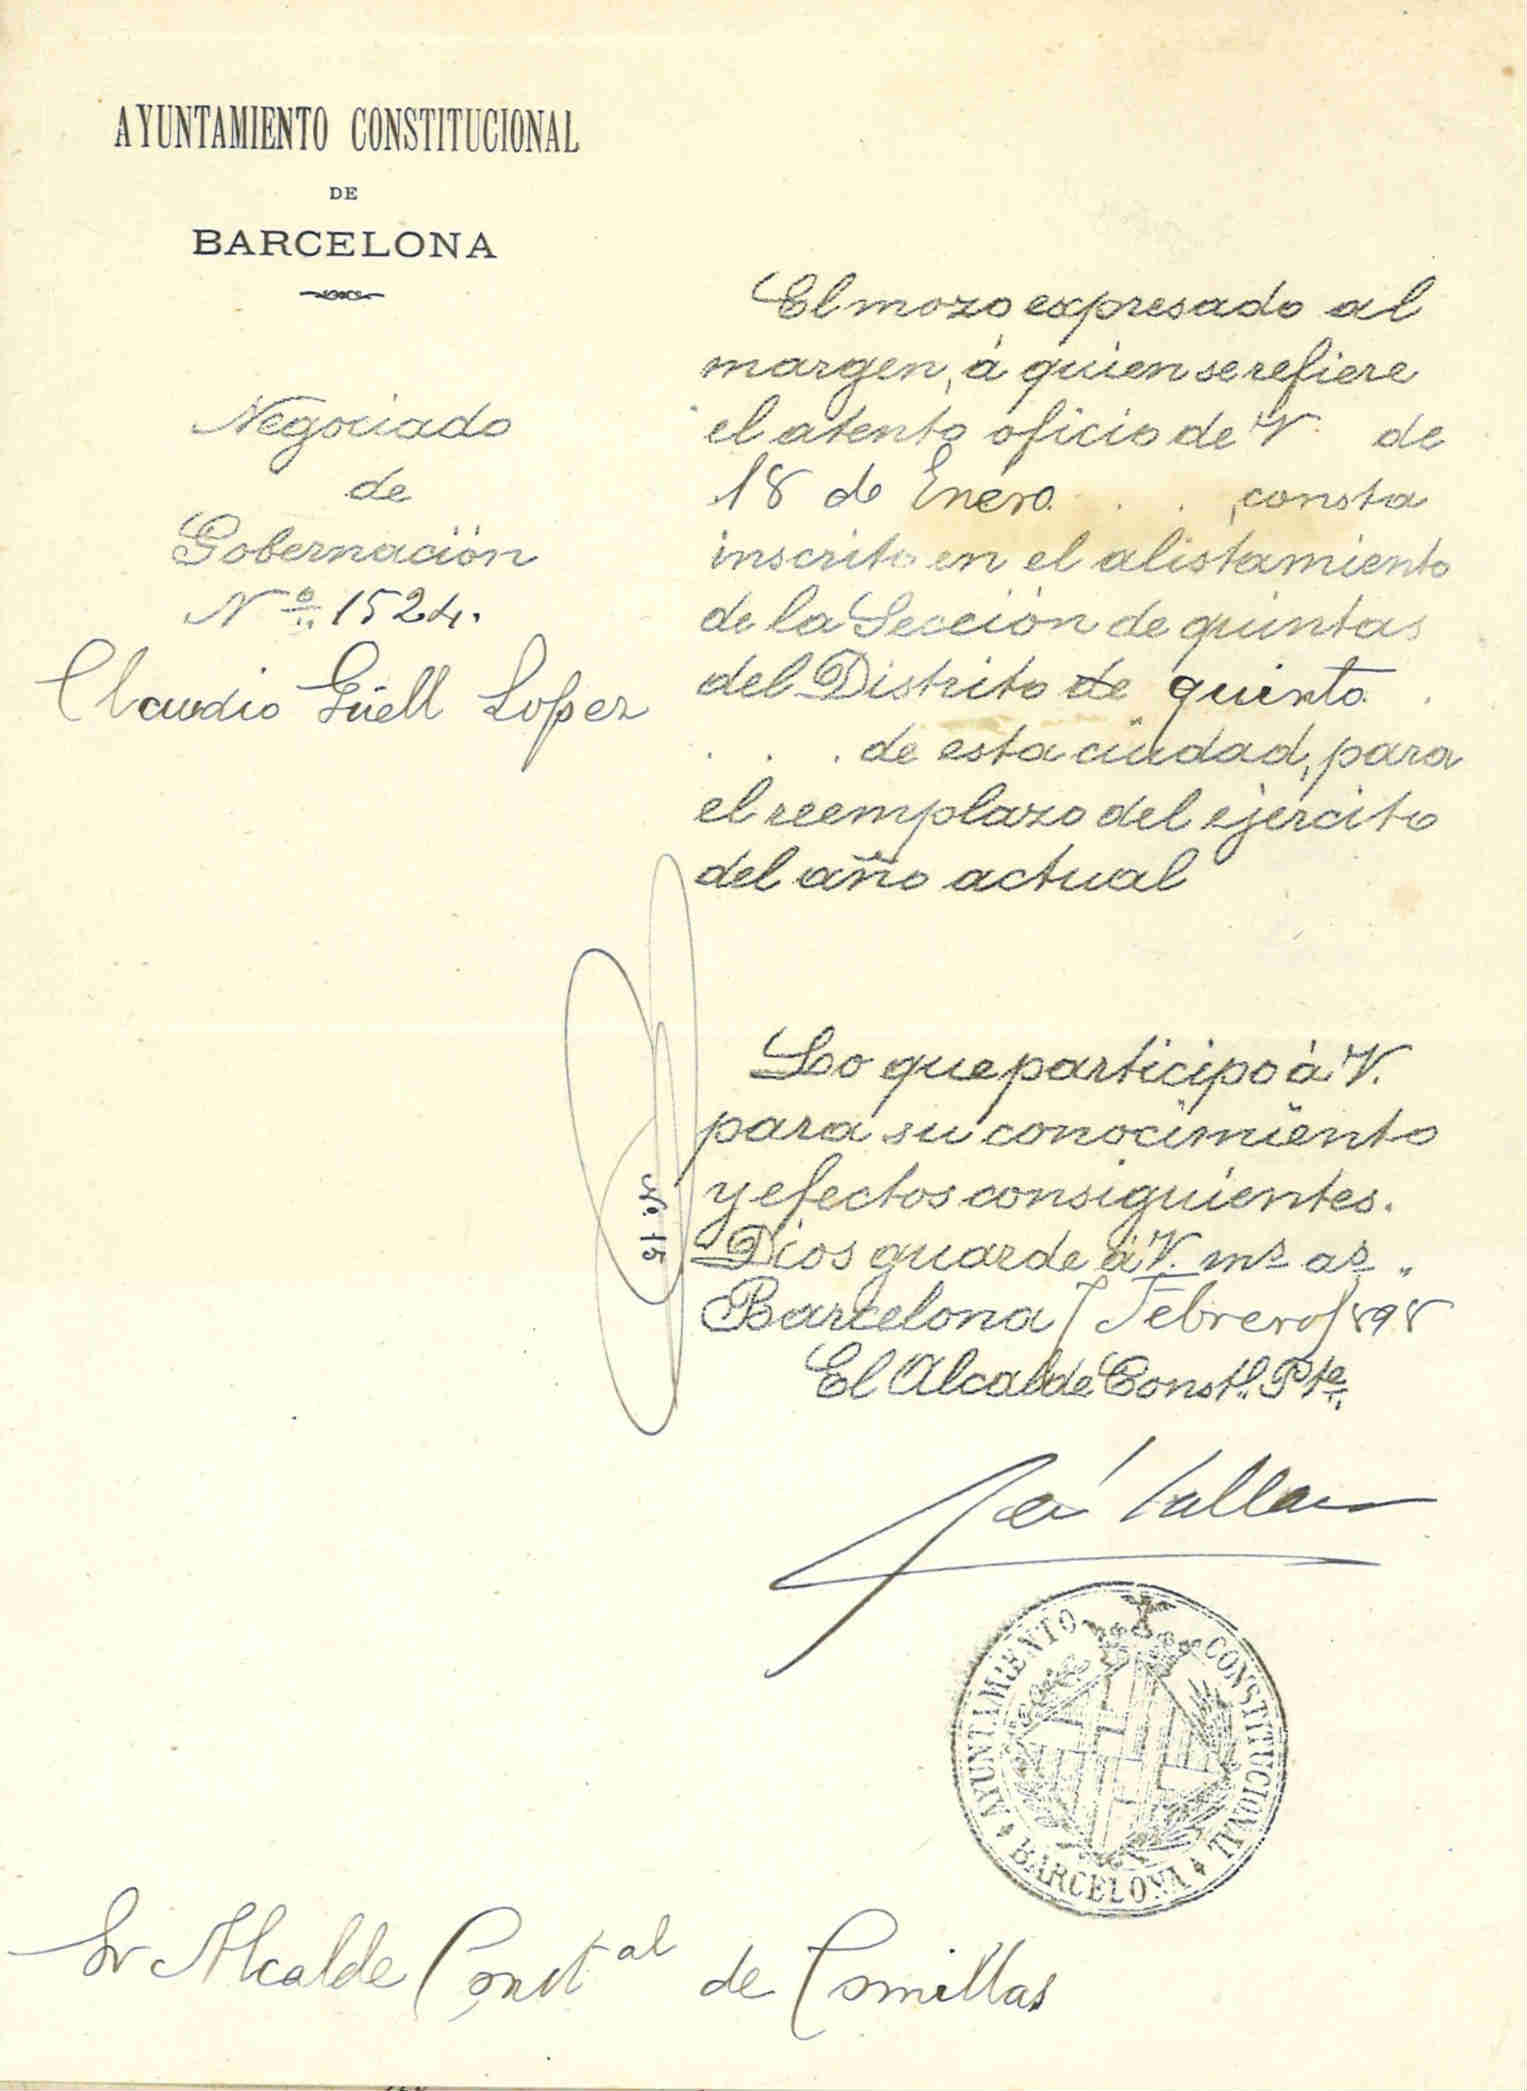 AYUNTAMIENTO CONSTITUCIONAL
DE
BARCELONA
Negociado
de
Gobernación
Nº 1524.
Claudio Güell Lopez
El mozo expresado al
margen, á quien se refiere
el atento oficio de V. de
18 de Enero . . , consta
inscrito en el alistamiento
de la Sección de quintas
del Distrito de quinto .
. . . de esta ciudad, para
el reemplazo del ejército
del año actual
Lo que participo á V.
para su conocimiento
y efectos consiguientes.
Dios guarde á V. ms. as.
Barcelona 7 Febrero 1898
El Alcalde Constl. Pte.
José
Nº 15
AYUNTAMIENTO CONSTITUCIONAL
BARCELONA
Sr Alcalde Constal de Comillas